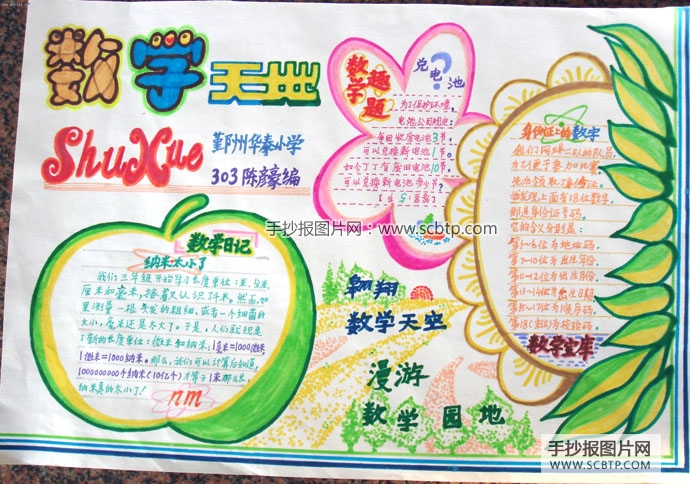 数学天地
ShuXue
鄞州华泰小学
303 陈豪编
数学趣题
兑电池
?
为了保护环境,
电池公司规定:
每回收废电池3节
可以兑换新电池1节。
如今丁丁有废旧电池10节,
可以兑换新电池多少节?
身份证上的数字
先的领取了身份证。
我发现上面有18位数字,
那是身份证号码。
它的含义分别是:
第1~6位为地址码。
第7~10位为出生年份。
第11~12位为出生月份。
第13~14位为出生日期。
第15~17位为顺序码。
第18(数)为校验码。
数学宝库
数学日记
纳米太小了
我们三年级开始学习长度单位:米、分米、
厘米和毫米,接着又认识了千米。然而,如
果测量一根头发的粗细,或者一个细菌的
大小,毫米还是太大了。于是,人们还规定
了新的长度单位:微米和纳米,1毫米=1000微米,
1微米=1000纳米。那么,我们可以计算后知道,
1000000000个纳米(10亿个)才等于1米那么长,
纳米真的太小了!
nm
翱翔
数学天空
漫游
数学园地
手抄报图片网:www.scbtp.com
手抄报图片网
WWW.SCBTP.COM